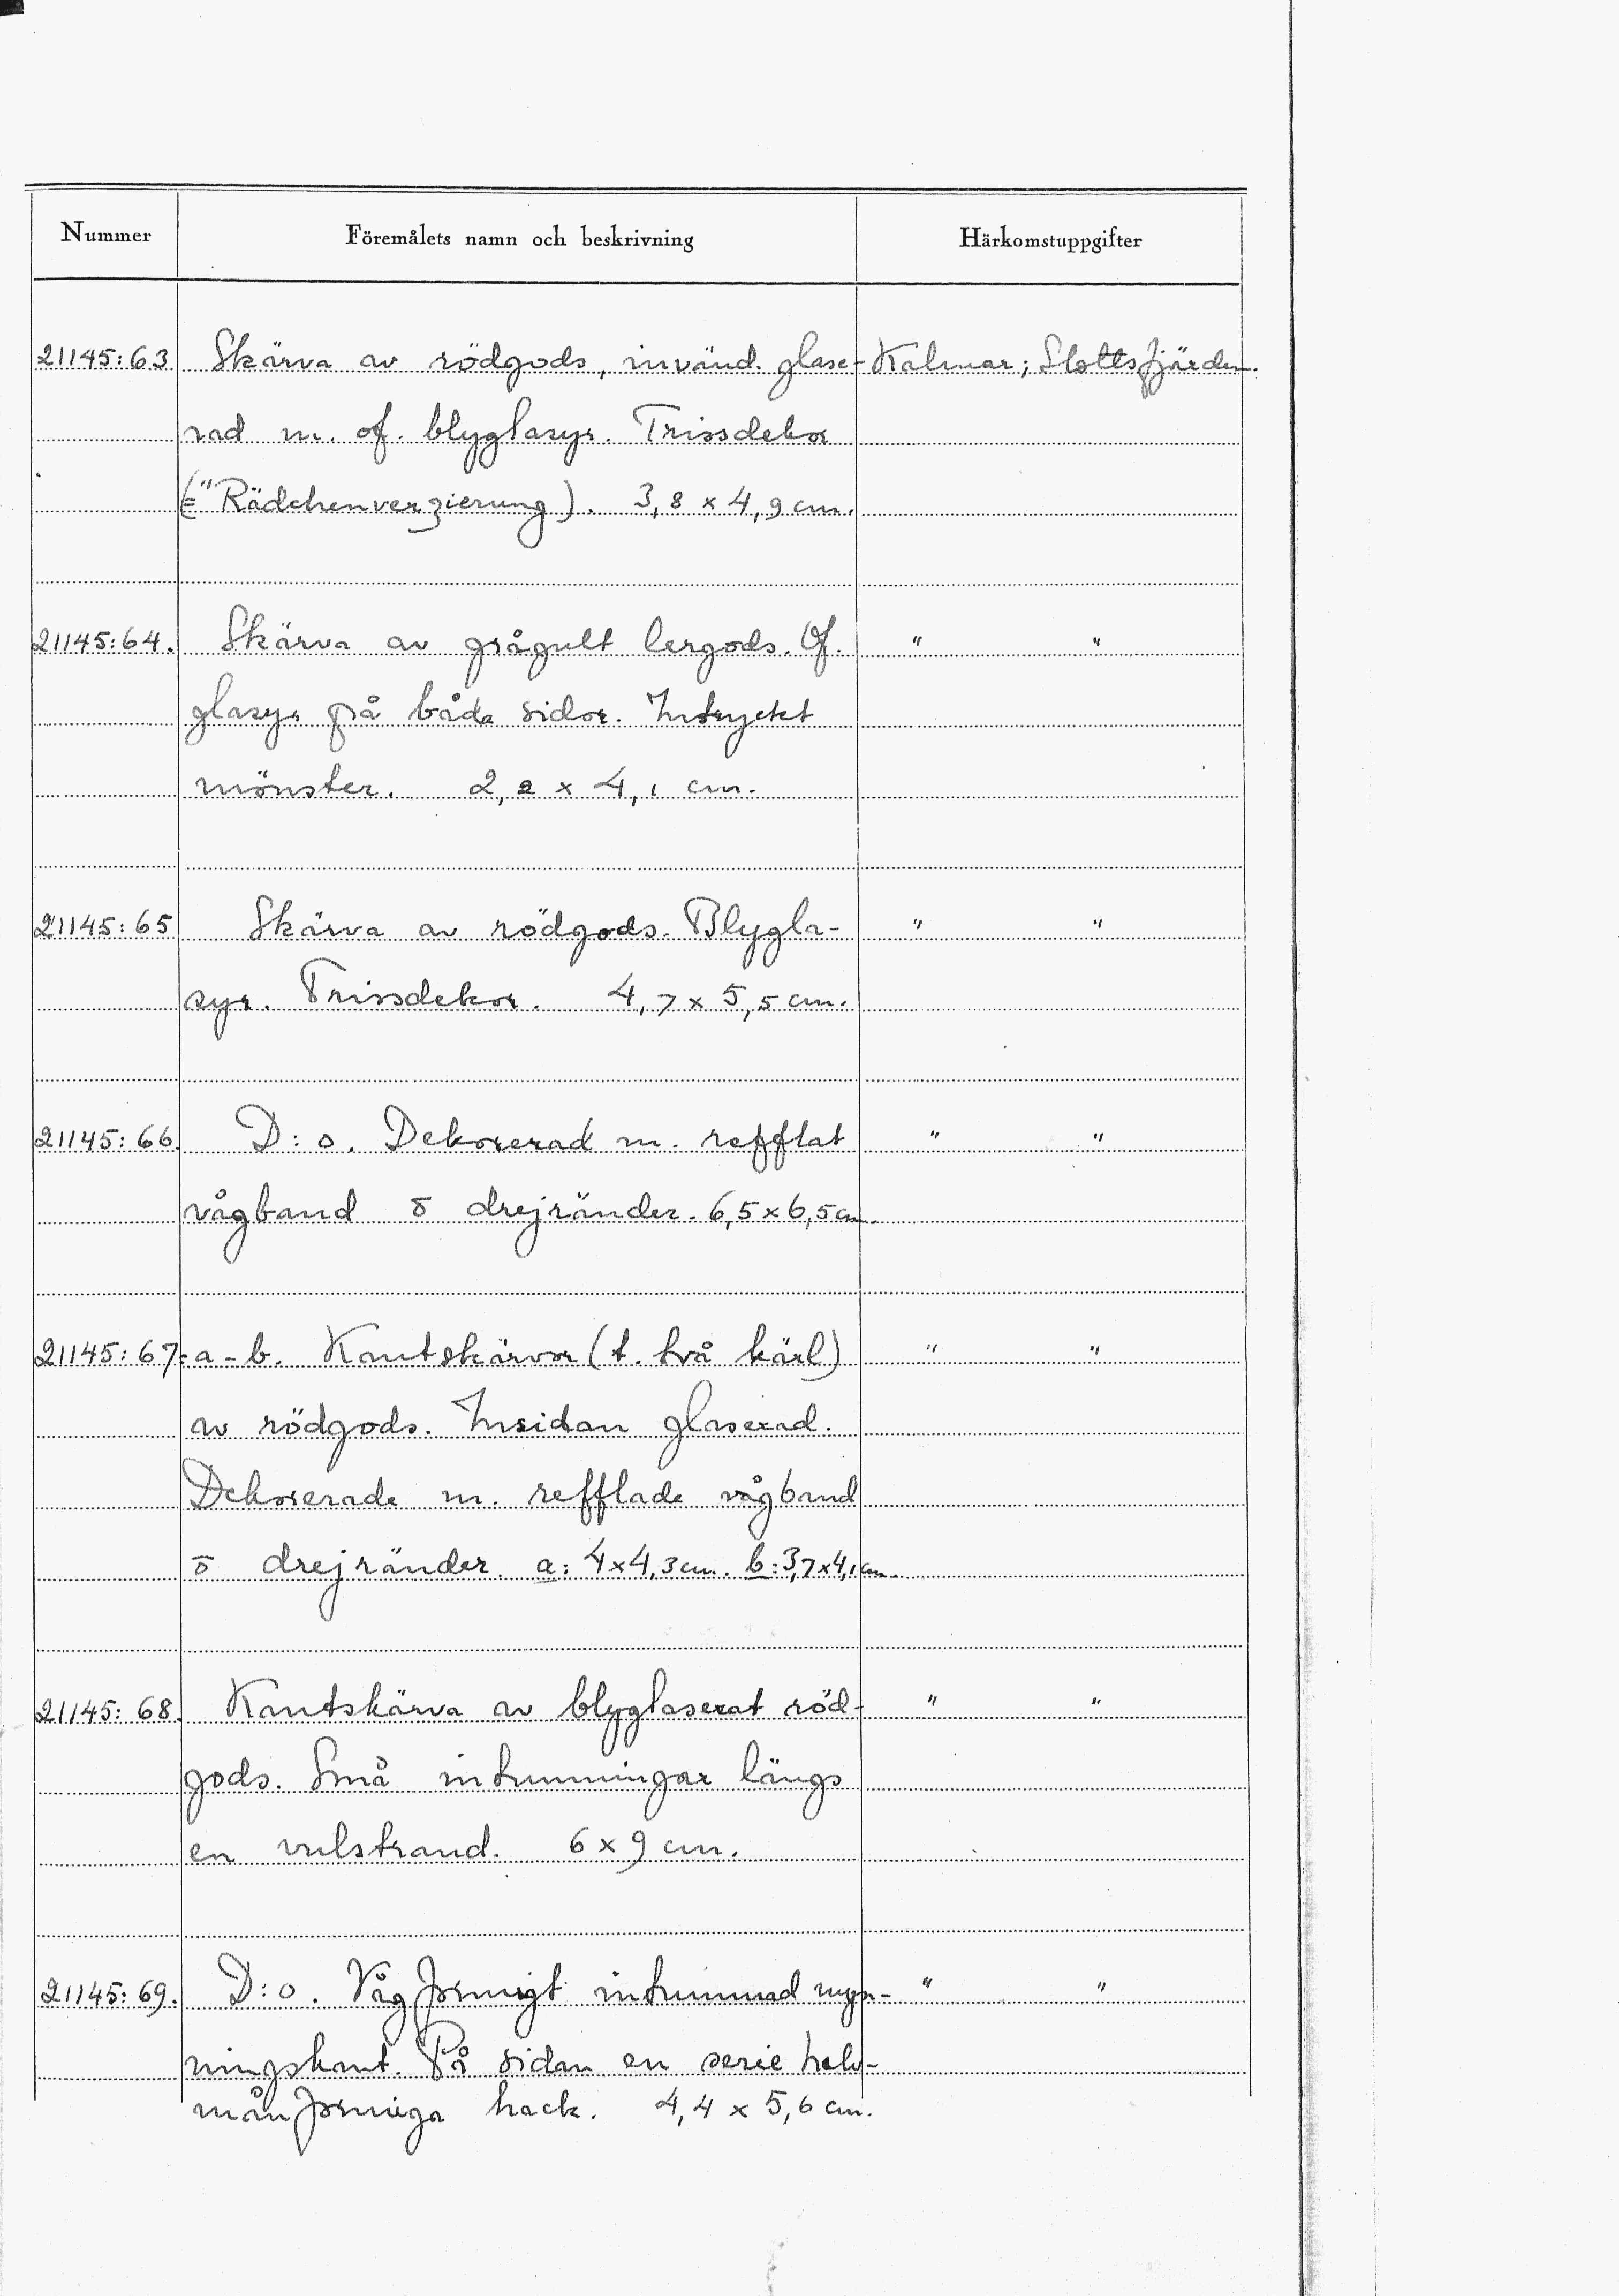 Nummer Föremålets namn och beskrivning Härkomstuppgifter
21145:63 Skärva av rödgods, invänd. glase- Kalmar; Slottsfjärden.
rad m. of. blyglasyr. Trissdekor
(="Rädchenverzierung). 3,8 x 4,9 cm.
21145:64. Skärva av grågult lergods. Of. " "
glasyr på båda sidor. Intryckt
mönster. 2,2 x 4,1 cm.
21145:65 Skärva av rödgods. Blygla- " "
syr. Trissdekor. 4,7 x 5,5 cm.
21145:66. D:o. Dekorerad m. refflat " "
vågband o drejränder. 6,5 x 6,5 cm.
21145:67: a-b. Kantskärvor (t. två kärl) " "
av rödgods. Insidan glaserad.
Dekorerade m. refflade vågband
o drejränder. a: 4x4,3 cm. b: 3,7x4,1 cm.
21145:68. Kantskärva av blyglaserat röd- " "
gods. Små intumningar längs
en vulstrand. 6 x 9 cm.
21145:69. D:o. Vågformigt intummad myn- " "
ningskant. På sidan en serie halv-
månformiga hack. 4,4 x 5,6 cm.